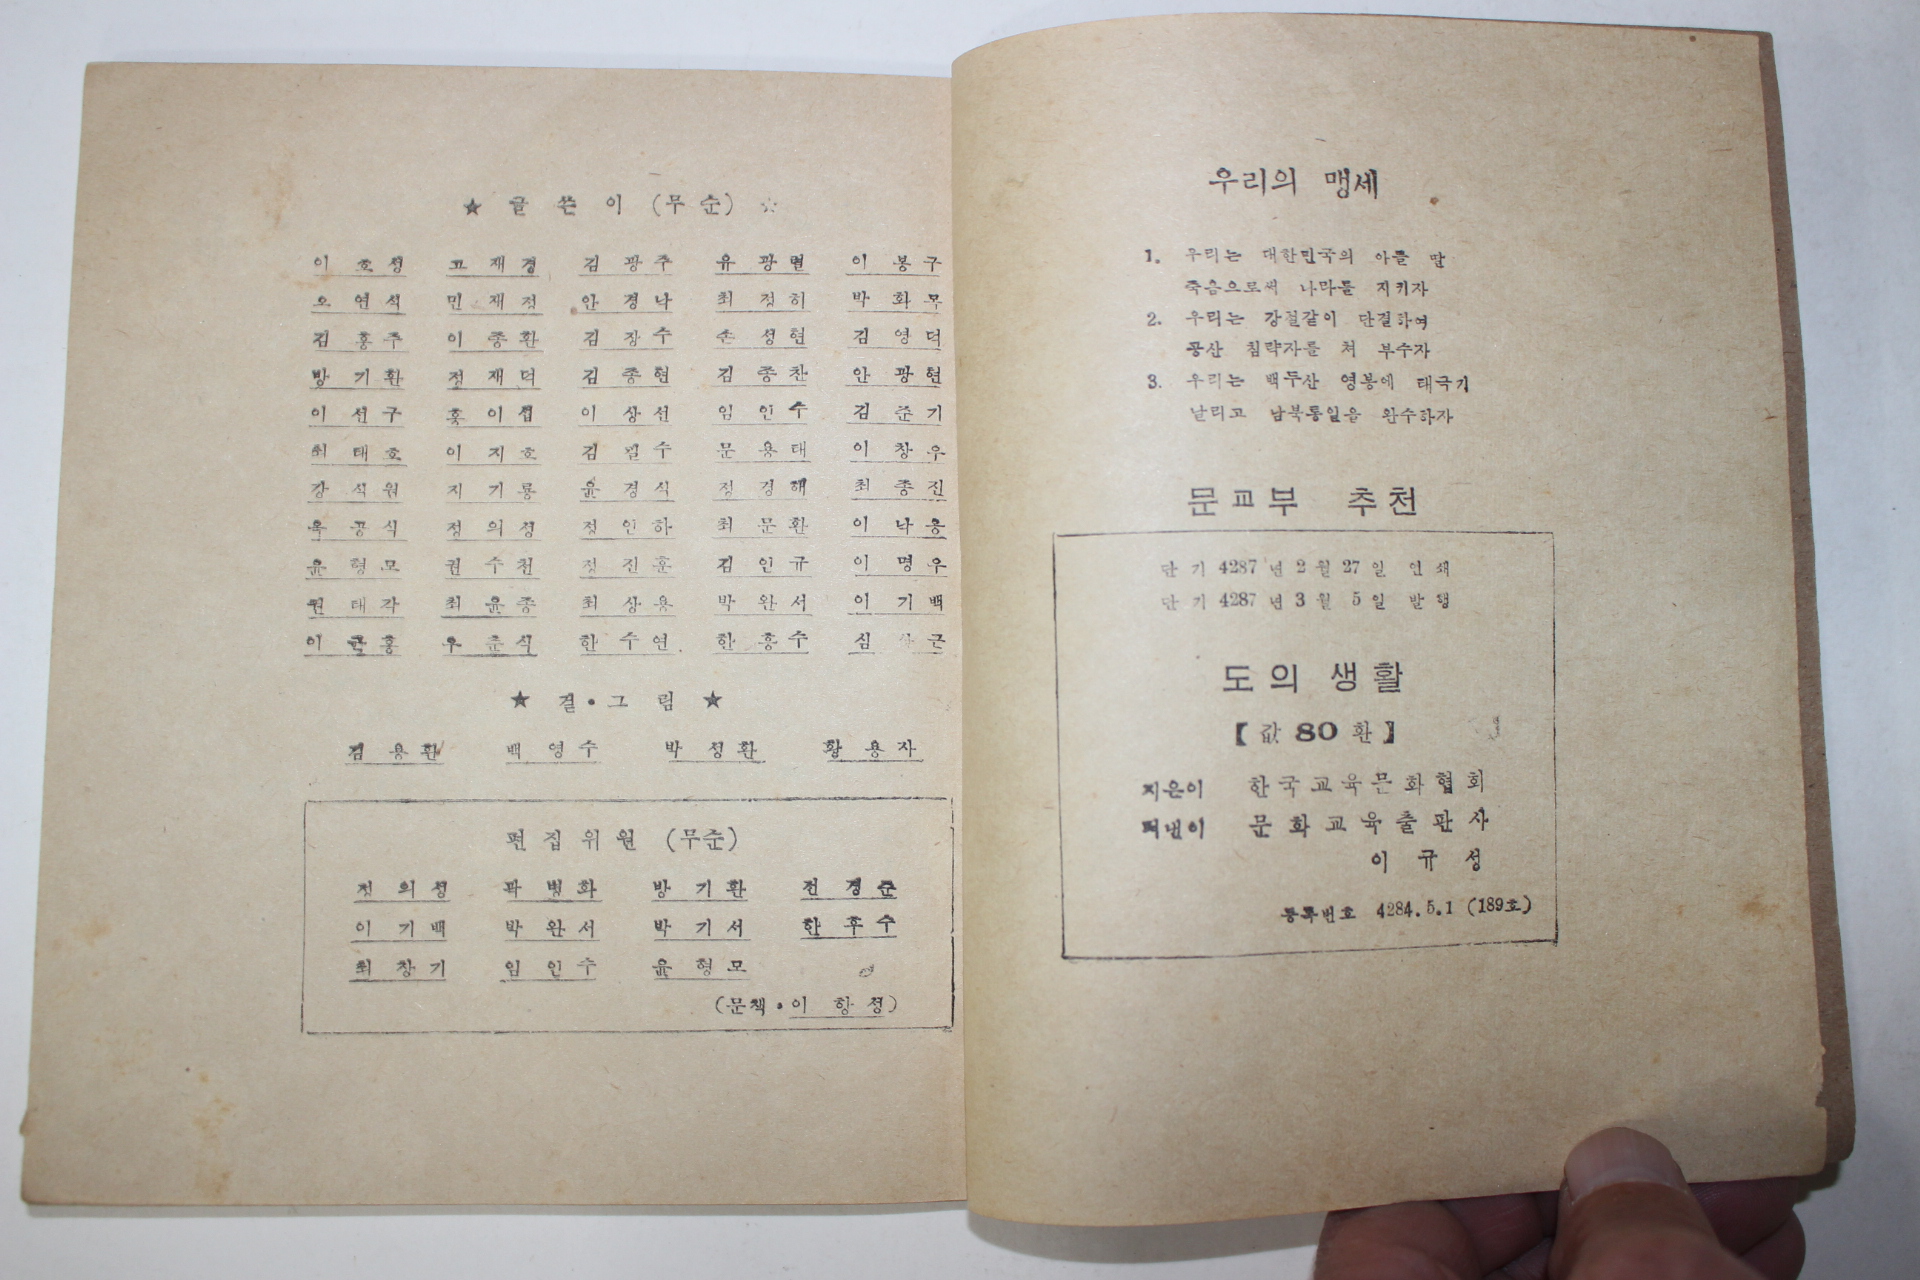 ★ 글 쓴 이 (무 순) ☆
이 호 성 고 재 경 김 광 주 유 광 렬 이 봉 구
오 연 석 민 재 정 안 경 낙 최 정 히 박 화 목
김 홍 주 이 종 환 김 장 수 손 성 현 김 영 덕
방 기 환 정 재 덕 김 종 현 김 종 찬 안 광 현
이 선 구 홍 이 섭 이 상 선 임 인 수 김 준 기
최 태 호 이 지 호 김 필 수 문 용 대 이 창 우
강 석 원 지 기 룡 윤 경 식 정 경 해 최 종 진
옥 공 식 정 의 성 정 인 하 최 문 환 이 낙 용
윤 형 모 권 수 천 정 진 훈 김 인 규 이 명 우
원 태 각 최 윤 종 최 상 용 박 완 서 이 기 백
이 홍 우 춘 식 한 수 연 한 흥 수 심 근
★ 겉 • 그 림 ★
김 용 환 백 영 수 박 성 환 황 용 자
편 집 위 원 (무순)
정 의 성 곽 병 화 방 기 환 전 경 준
이 기 백 박 완 서 박 기 서 한 후 수
최 창 기 임 인 수 윤 형 모
(문책 • 이 항 성)
우리의 맹세
1. 우리는 대한민국의 아들 딸
죽음으로써 나라를 지키자
2. 우리는 강철같이 단결하여
공산 침략자를 쳐 부수자
3. 우리는 백두산 영봉에 태극기
날리고 남북통일을 완수하자
문교부 추천
단 기 4287 년 2 월 27 일 인 쇄
단 기 4287 년 3 월 5 일 발 행
도의 생활
【 값 80 환 】
지은이 한국교육문화협회
펴낸이 문화교육출판사
이 규 성
등록번호 4284.5.1 (189호)